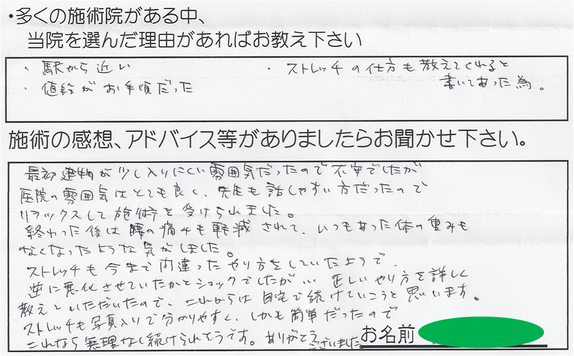 ・多くの施術院がある中、
当院を選んだ理由があればお教え下さい
・駅から近い
・ストレッチの仕方も教えてくれると
書いてあった為。
・値段がお手頃だった
施術の感想、アドバイス等がありましたらお聞かせ下さい。
最初建物が少し入りにくい雰囲気だったので不安でしたが
医院の雰囲気はとても良く、先生も話しやすい方だったので
リラックスして施術を受けられました。
終わった後は腰の痛みも軽減されて、いつもあった体の重みも
なくなったような気がしました。
ストレッチも今まで間違ったやり方をしていたようで、
逆に悪化させていたかとショックでしたが… 正しいやり方を詳しく
教えていただいたので、これからは自宅で続けていこうと思います。
ストレッチも写真入りで分かりやすく、しかも簡単だったので
これなら無理なく続けられそうです。ありがとう
ございました
お名前